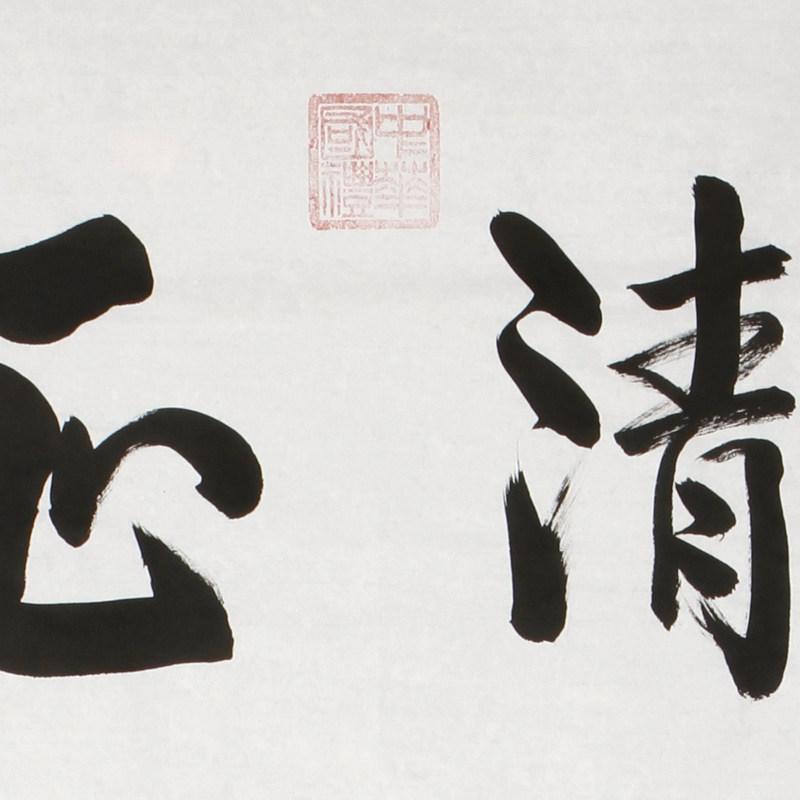 清
中華
國禮